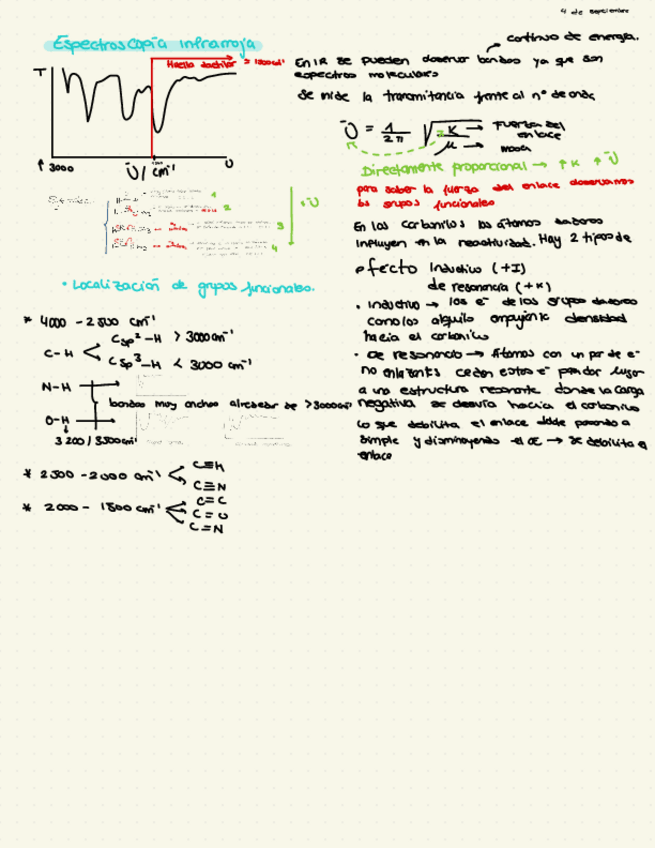 4 de septiembre
Espectroscopía infrarroja
T
Huella dactilar
↑ 3000
ῡ / cm⁻¹
1
2
3
4
↑ῡ
• Localización de grupos funcionales.
* 4000 - 2500 cm⁻¹
C-H
Csp²-H > 3000 cm⁻¹
Csp³-H < 3000 cm⁻¹
N-H
bandas muy anchas alrededor de >3000cm⁻¹
O-H
3200/3500cm⁻¹
* 2500 - 2000 cm⁻¹
C≡N
* 2000 - 1500 cm⁻¹
C=C
C=O
C=N
continuo de energía.
En IR se pueden observar bandas ya que son
espectros moleculares
Se mide la transmitancia frente al nº de onda
ῡ = 1/2π √K/μ
Fuerza del
enlace
masa
Directamente proporcional → ↑K ↑ῡ
para saber la fuerza del enlace observamos
los grupos funcionales
En los carbonilos los átomos dadores
influyen en la reactividad. Hay 2 tipos de
efecto Inductivo (+I)
de resonancia (+K)
• Inductivo → los e⁻ de los grupos dadores
como los alquilo empujan densidad
hacia el carbonilo
• De resonancia → Átomos con un par de e⁻
no enlazantes ceden estos e⁻ para dar lugar
a una estructura resonante donde la carga
negativa se desvía hacia el carbonilo
lo que debilita el enlace doble pasando a
simple y disminuyendo el → se debilita el
enlace